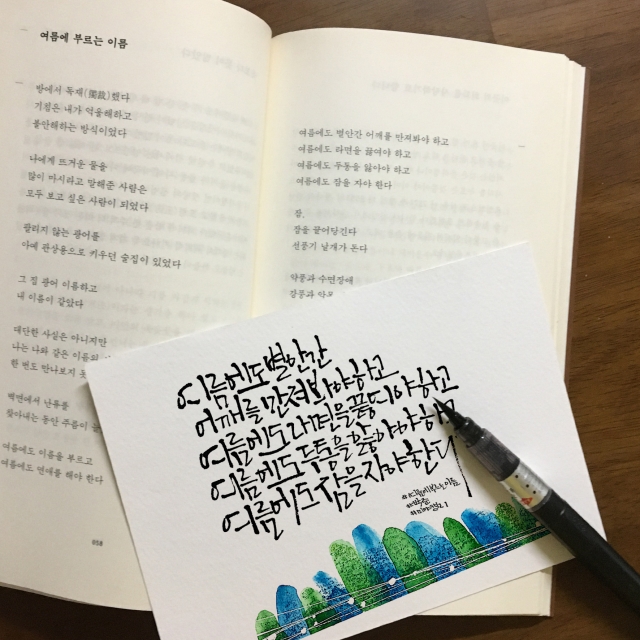 여름에 부르는 이름
방에서 독재(獨裁)했다
기침은 내가 억울해하고
불안해하는 방식이었다
나에게 뜨거운 물을
많이 마시라고 말해준 사람은
모두 보고 싶은 사람이 되었다
팔리지 않는 광어를
아예 관상용으로 키우던 술집이 있었다
그 집 광어 이름하고
내 이름이 같았다
대단한 사실은 아니지만
나는 나와 같은 이름의
한 번도 만나보지 못
벽면에서 난류를
찾아내는 동안 주름이
여름에도 이름을 부르고
여름에도 연애를 해야 한다
058
여름에도 별안간 어깨를 만져봐야 하고
여름에도 라면을 끓여야 하고
여름에도 두통을 앓아야 하고
여름에도 잠을 자야 한다
잠,
잠을 끌어당긴다
선풍기 날개가 돈다
약풍과 수면장애
강풍과 악몽
여름에도 별안간
어깨를 만져봐야하고
여름에도 라면을 끓여야하고
여름에도 두통을 앓아야하고
여름에도 잠을 자야한다
#여름에부르는이름
#박준